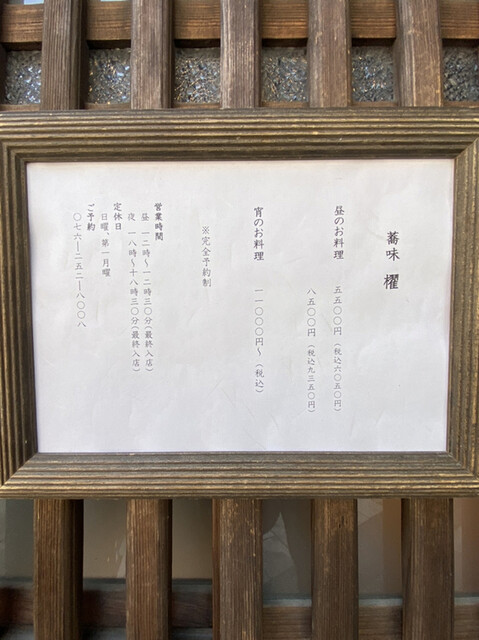 蕎味 櫂
昼のお料理 五五〇〇円 (税込六〇五〇円)
八五〇〇円 (税込九三五〇円)
宵のお料理 一一〇〇〇円〜 (税込)
※完全予約制
営業時間
昼 一二時〜一二時三〇分(最終入店)
夜 一八時〜十八時三〇分(最終入店)
定休日
日曜、第一月曜
ご予約
〇七六―二五二―八〇〇八